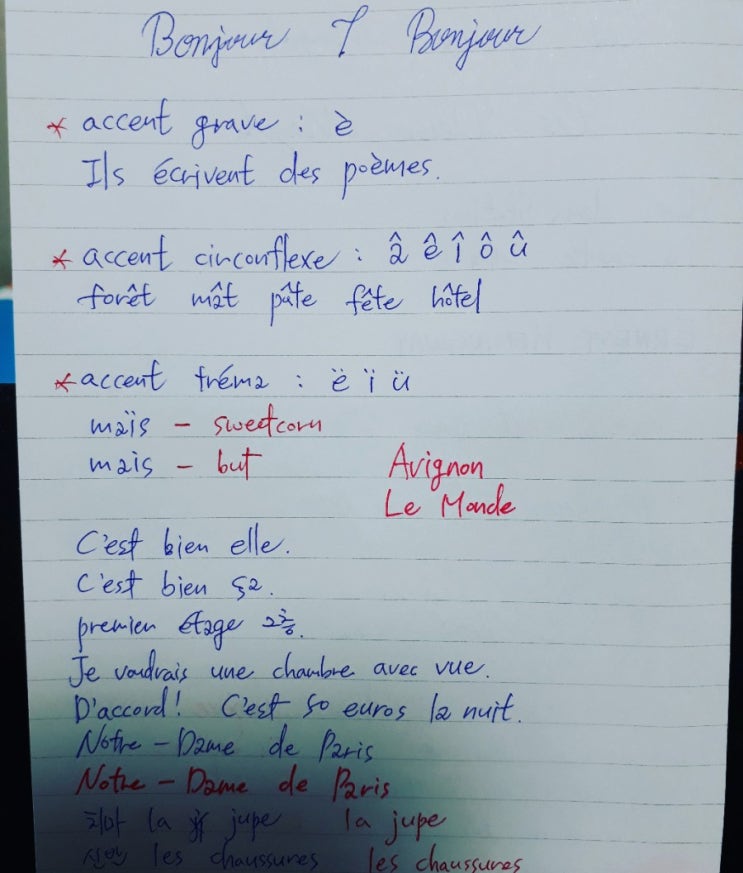 Bonjour 7 Bonjour
* accent grave : è
Ils écrivent des poèmes.
* accent circonflexe : â ê î ô û
forêt mât pâte fête hôtel
* accent tréma : ë ï ü
maïs - sweetcorn
mais - but
Avignon
Le Monde
C'est bien elle.
C'est bien ça.
premien étage 2층.
Je voudrais une chambre avec vue.
D'accord! C'est 50 euros la nuit.
Notre-Dame de Paris
Notre-Dame de Paris
치마 la jupe la jupe
신발 les chaussures les chaussures